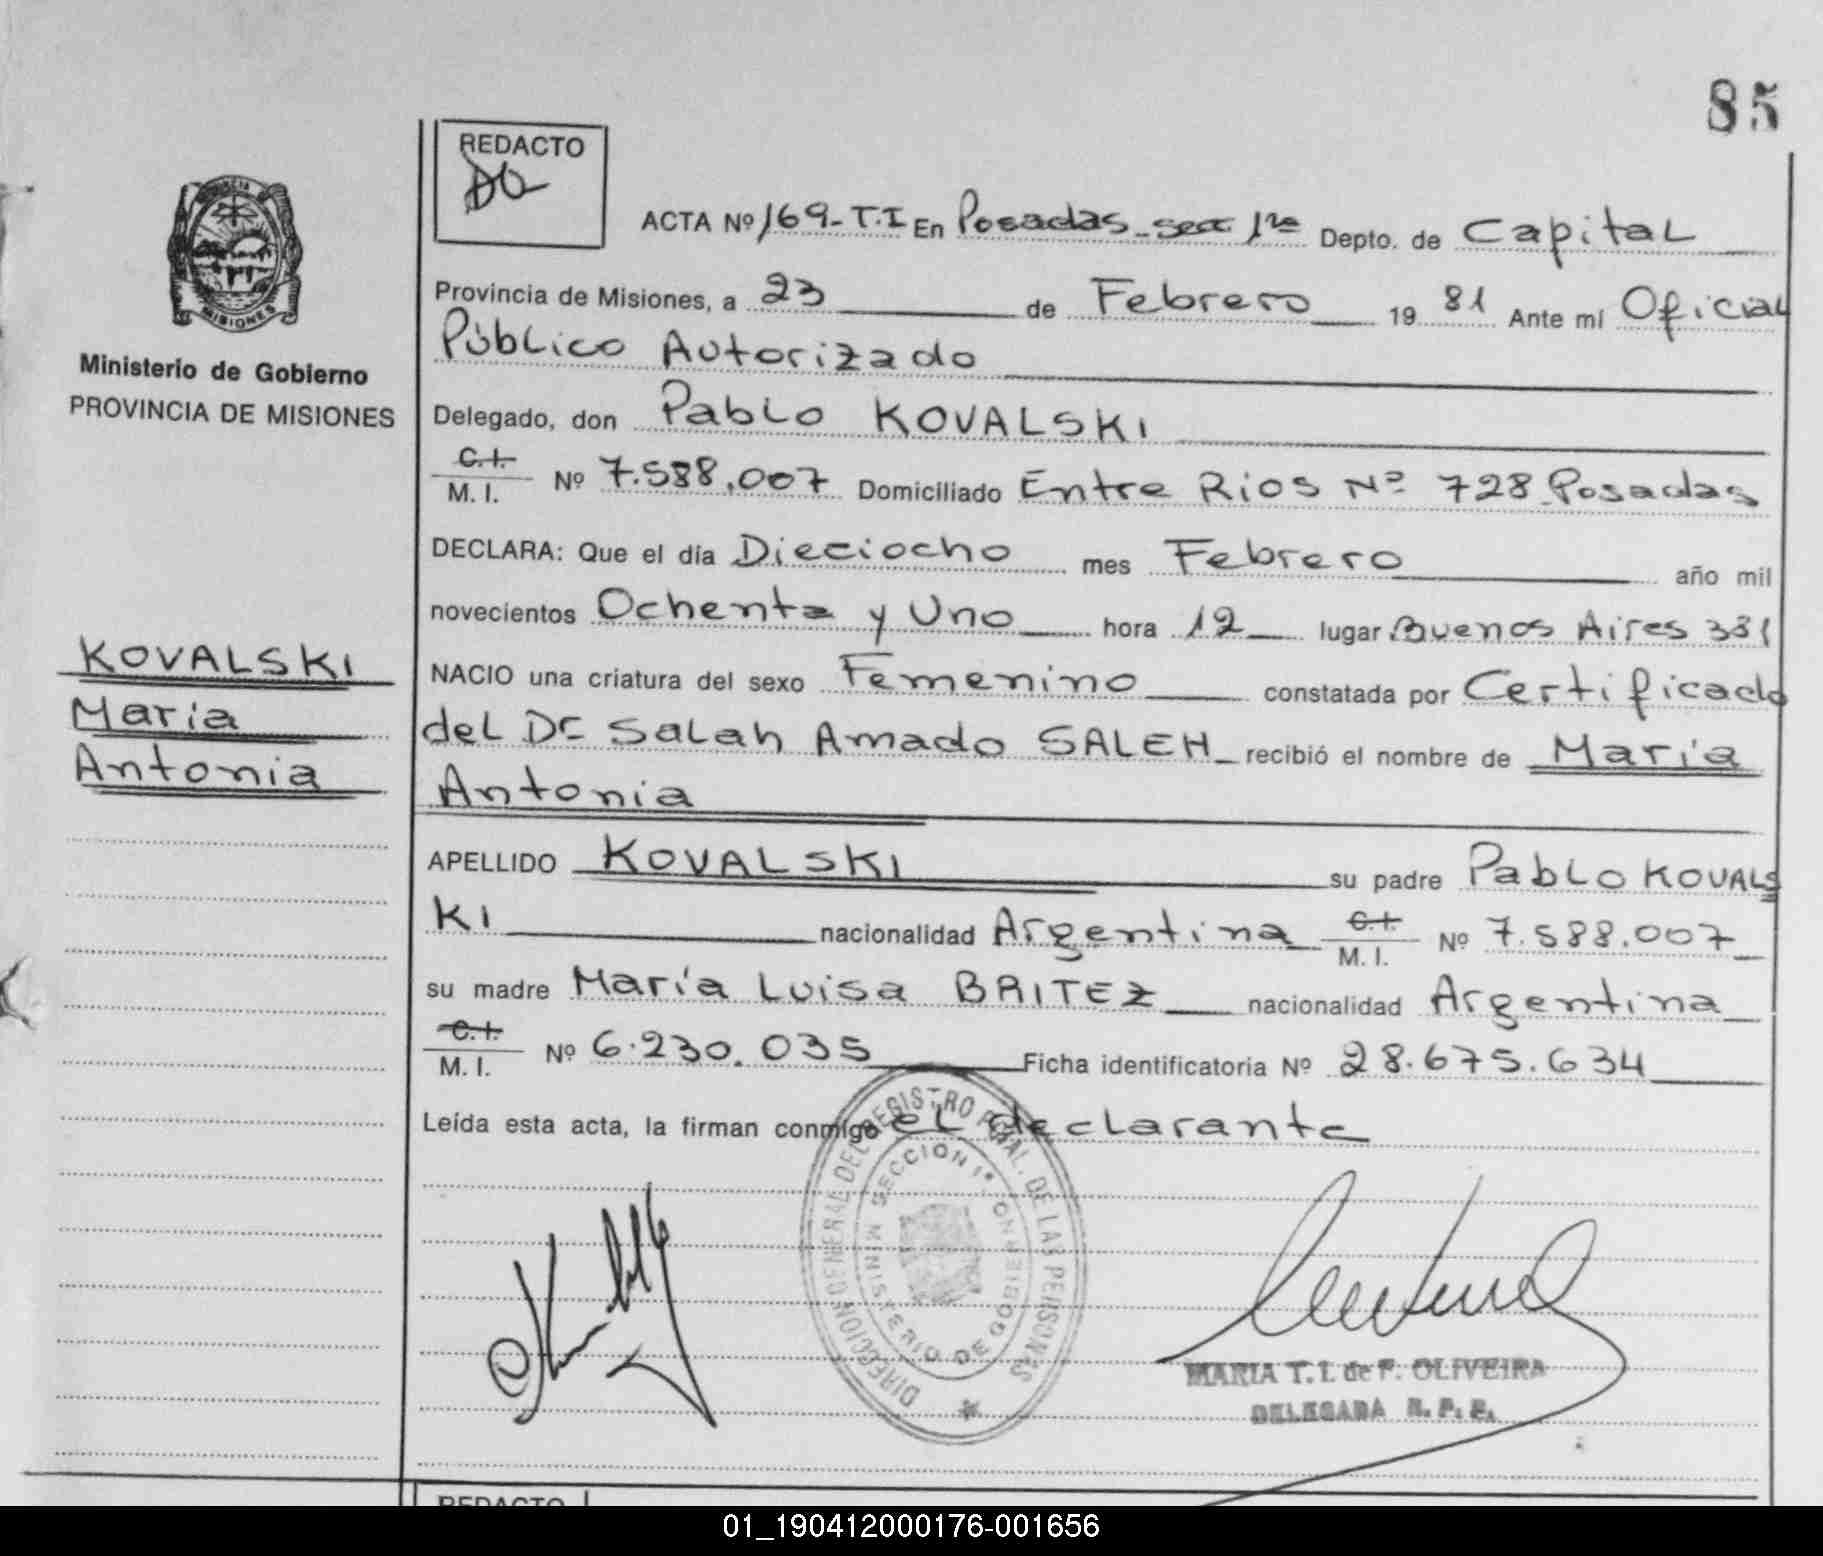 85
REDACTO
ACTA Nº 169-T.I En Posadas-secc 1ra Depto. de Capital
Provincia de Misiones, a 23 de Febrero 1981 Ante mí Oficial
Público Autorizado
Delegado, don Pablo KOVALSKI
C.I.
M. I. Nº 7.588.007 Domiciliado Entre Rios Nº 728 Posadas
DECLARA: Que el día Dieciocho mes Febrero año mil
novecientos Ochenta y Uno hora 12 lugar Buenos Aires 331
NACIO una criatura del sexo Femenino constatada por Certificado
del Dr Salah Amado SALEH recibió el nombre de María
Antonia
APELLIDO KOVALSKI su padre Pablo KOVALS
KI nacionalidad Argentina C.I. M. I. Nº 7.588.007
su madre María Luisa BRITEZ nacionalidad Argentina
C.I.
M. I. Nº 6.230.035 Ficha identificatoria Nº 28.675.634
Leída esta acta, la firman conmigo el declarante
MISIONES
Ministerio de Gobierno
PROVINCIA DE MISIONES
KOVALSKI
María
Antonia
DIRECCION GENERAL DEL REGISTRO PCIAL. DE LAS PERSONAS
SECCION 1ª
MINISTERIO DE GOBIERNO
MARIA T. I. de F. OLIVEIRA
DELEGADA R. P. P.
REDACTO
01_190412000176-001656